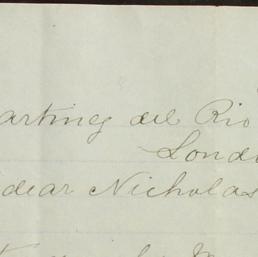 artinez del Rio
Lond
dear Nicholas